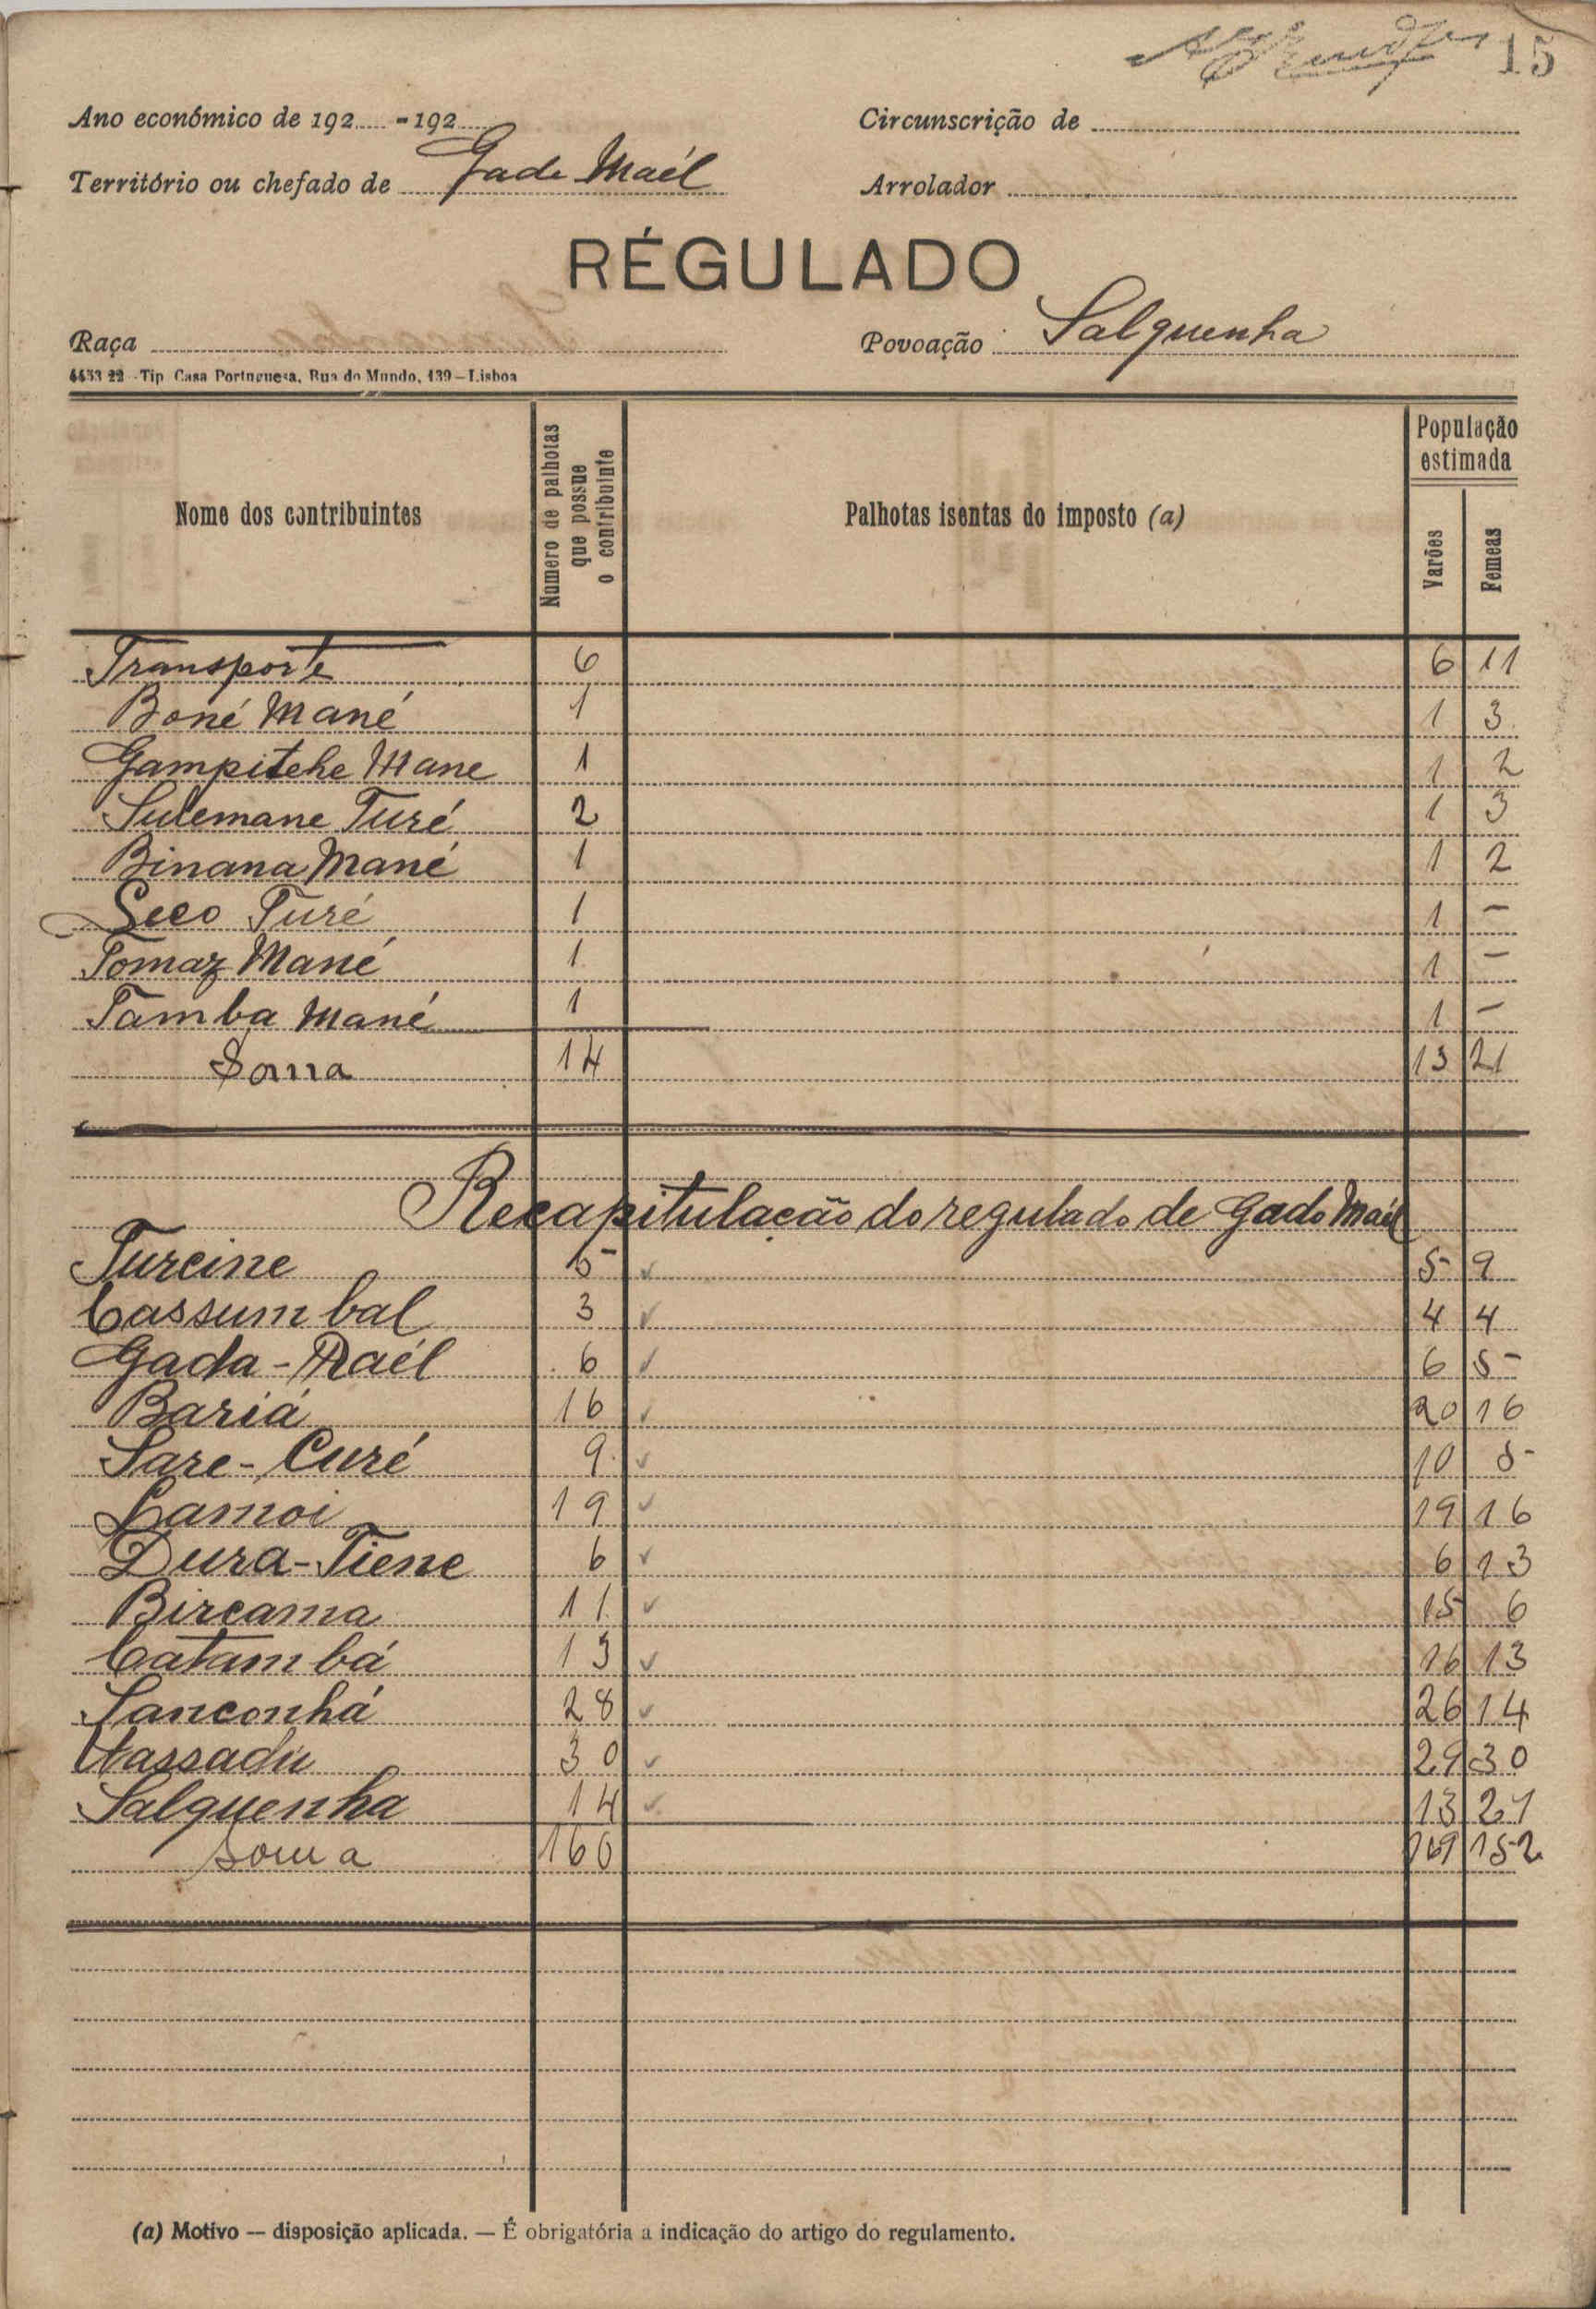 15
Ano económico de 192 - 192
Circunscrição de
Território ou chefado de Gade Maél
Arrolador
RÉGULADO
Raça
Povoação Salquenha
4453 22 - Tip Casa Portuguesa, Rua do Mundo, 139 — Lisboa
Nome dos contribuintes
Numero de palhotas que possue o contribuinte
Palhotas isentas do imposto (a)
População estimada
Varões
Femeas
Transporte 6 6 11
Boné Mané 1 1 3
Gampitehe Mane 1 1 2
Sulemane Turé 2 1 3
Binana Mané 1 1 2
Seco Turé 1 1 -
Tomaz Mané 1 1 -
Tamba Mané 1 1 -
Soma 14 13 21
Recapitulação do regulado de Gado Maél
Turcine 5 ✓ 5 9
Cassumbal 3 ✓ 4 4
Gada-Maél 6 ✓ 6 5
Bariá 16 ✓ 20 16
Sare-Curé 9 ✓ 10 5
Lamoi 19 ✓ 19 16
Dura-Tiene 6 ✓ 6 13
Bircama 11 ✓ 15 6
Catambá 13 ✓ 16 13
Sanconhá 28 ✓ 26 14
30 ✓ 29 30
Salquenha 14 ✓ 13 21
Soma 160 169 152
(a) Motivo — disposição aplicada. — É obrigatória a indicação do artigo do regulamento.